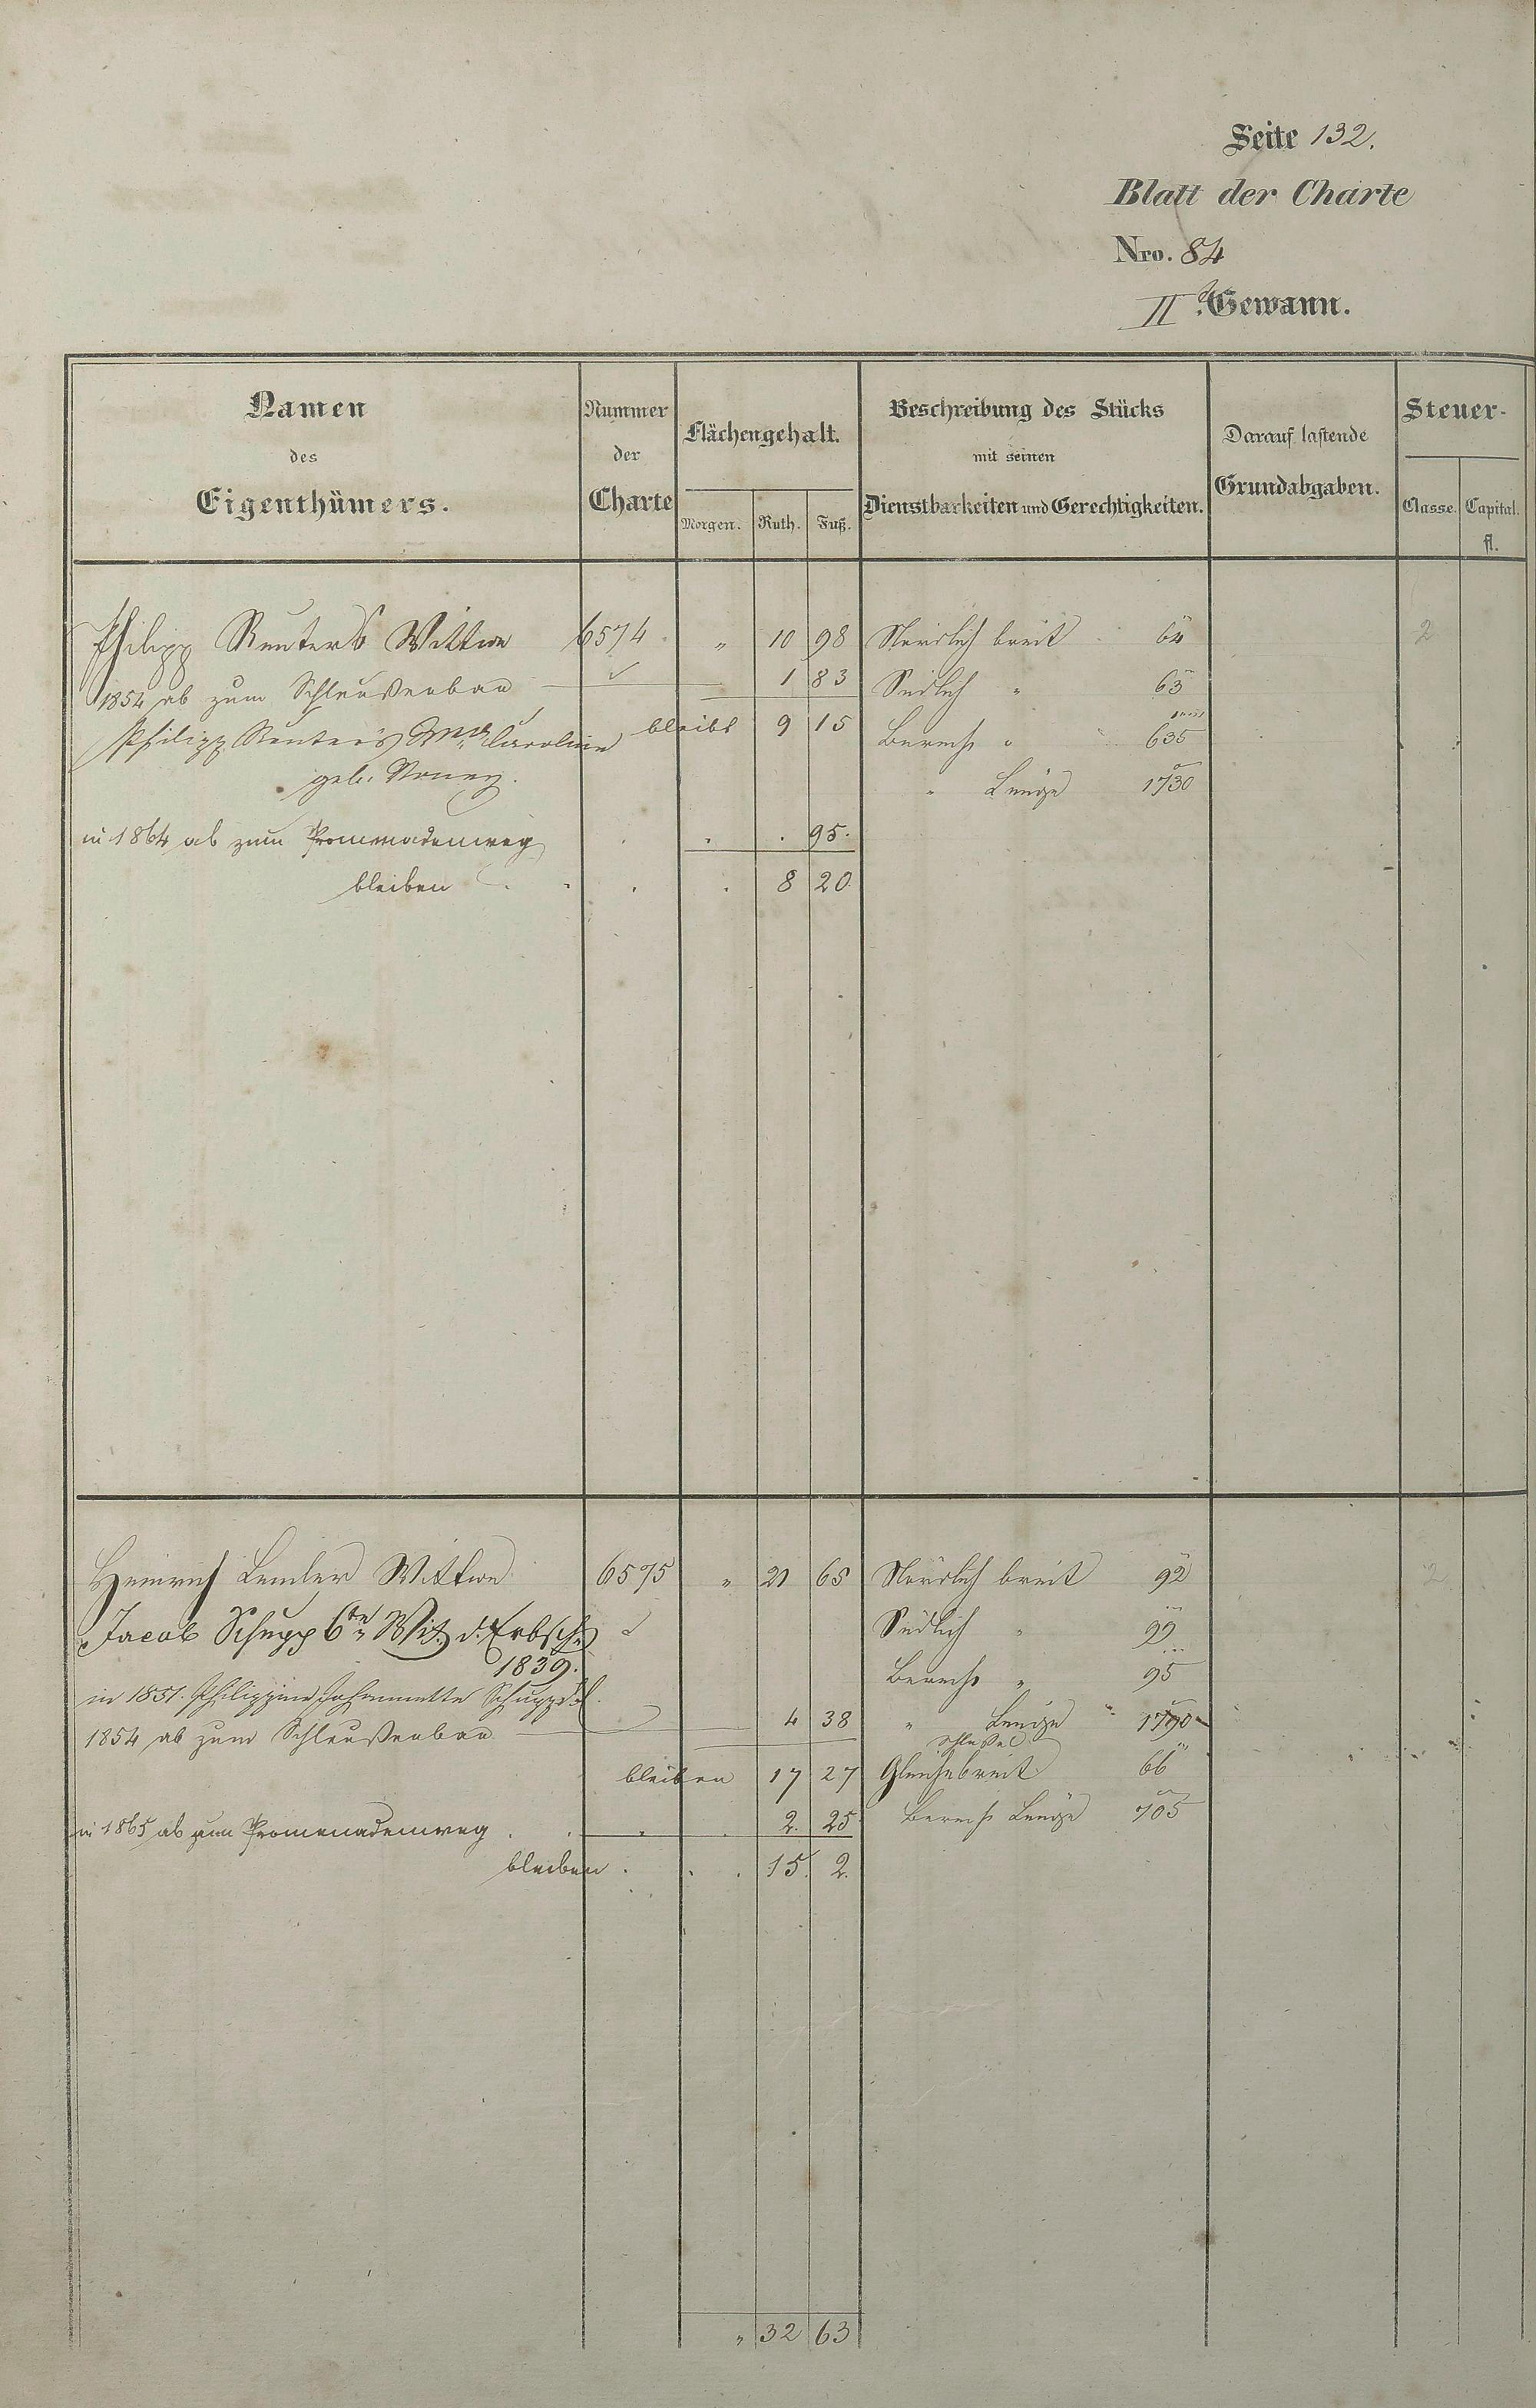 Seite 132.
Blatt der Charte
Nro. 84
II. Gewann.
Namen des Eigenthümers.
Nummer der Charte
Flächengehalt.
Morgen. Ruth. Fuß.
Beschreibung des Stücks mit seinen Dienstbarkeiten und Gerechtigkeiten.
Darauf lastende Grundabgaben.
Steuer-
Classe. Capital. fl.
Philipp Reuters Wittwe 6574 " 10 98 Nördlich breit 64 2
1854 ab zum Schleußenbau 1 83 Südlich " 63
Philipp Reuter's Caroline bleibt 9 15 Berech " 635
geb. " Länge 1730
in 1864 ab zum Promenadenweg . . 95.
bleiben . . . . 8 20.
Heinrich Wittwe 6575 " 21 65 Nördlich breit 92 2
Jacob Schupp 6ter Wit. d. Erbsch. Südlich " 99
1839. Berech " 95
in 1851. Philippine Johannette Schupp
1854 ab zum Schleußenbau 4 38 " Länge 1790
bleiben 17 27 Gleichebreit 66
in 1865 ab zum Promenadenweg . . . . 2. 25. Berech Länge 705
bleiben . . . 15. 2.
" 32 63